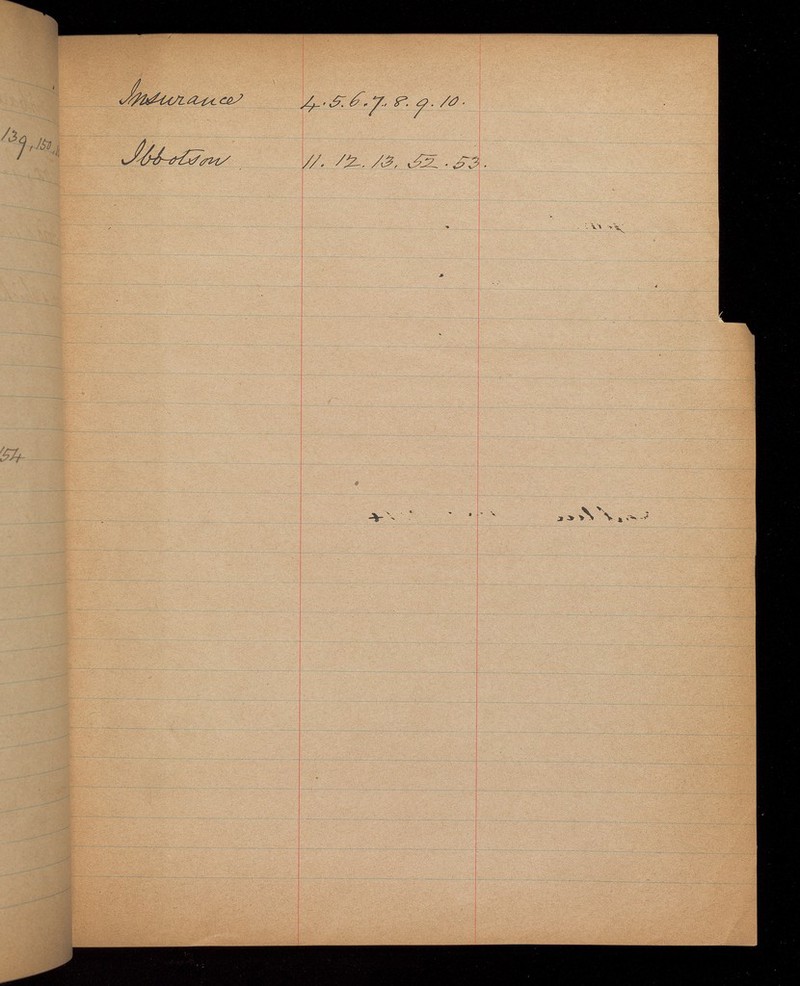 Insurance 4.5.6.7.8.9.10.
Ibbotson 11.12.13.52.53.
139.150.
154